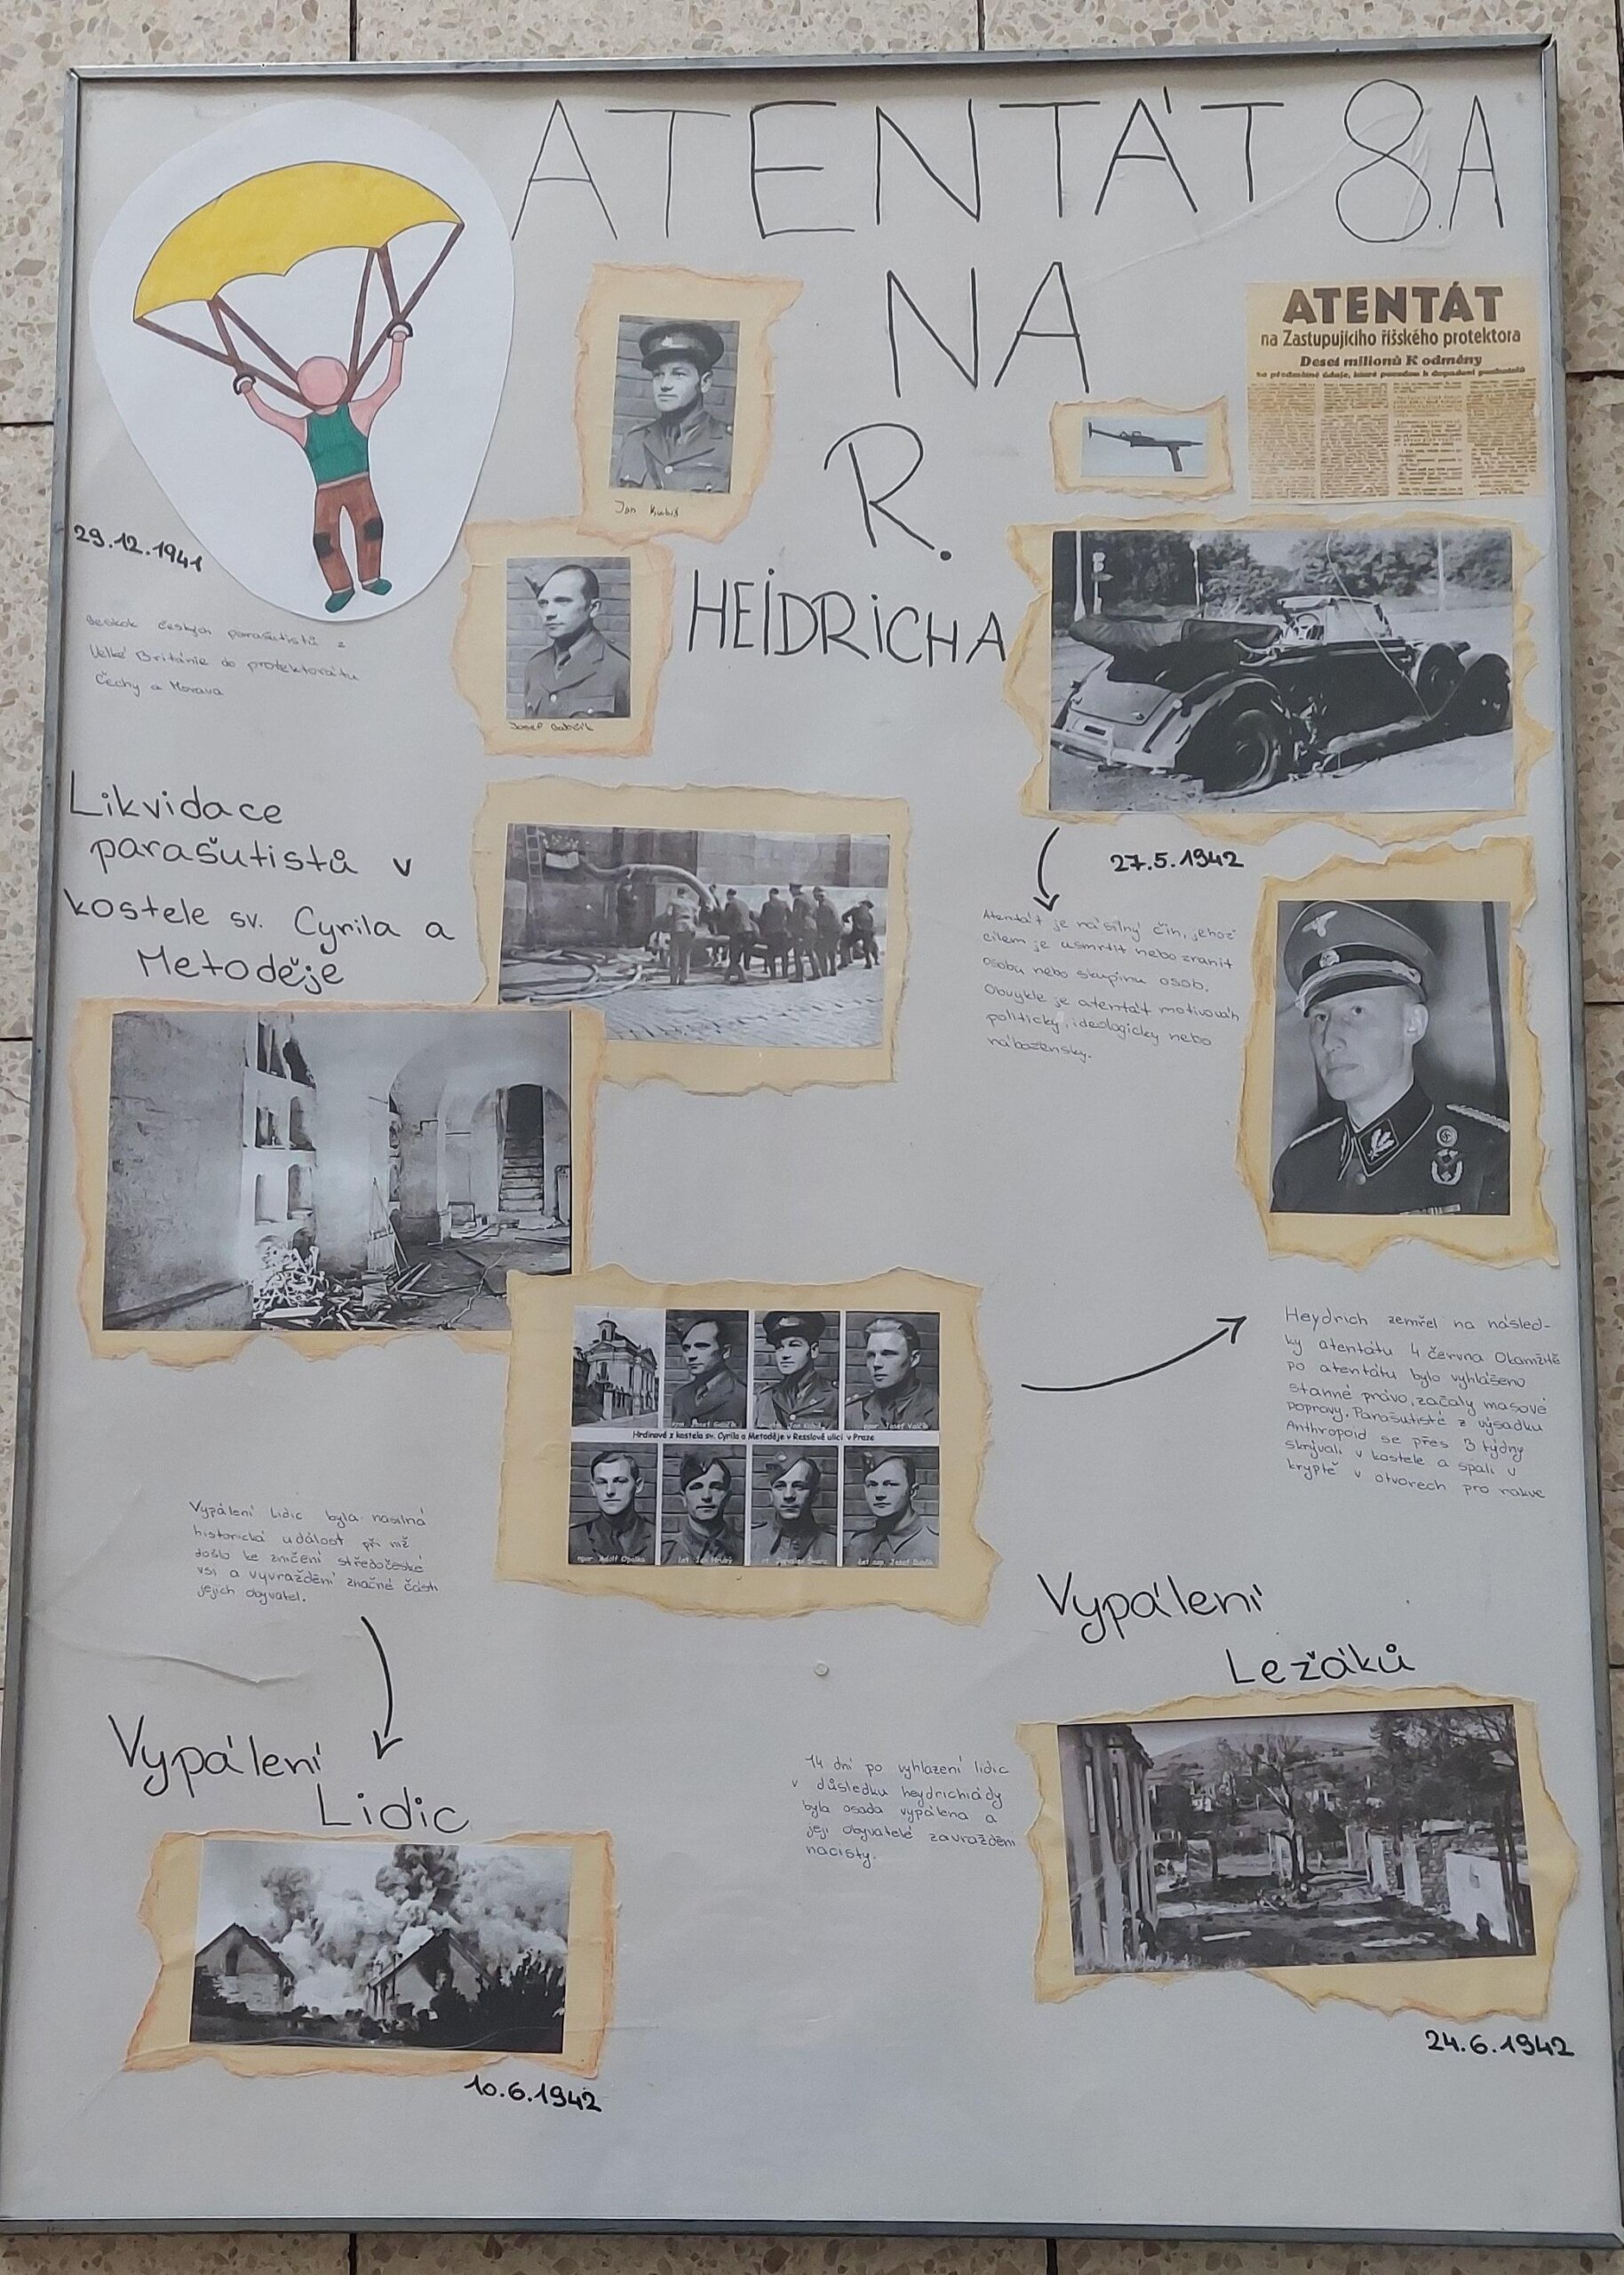 ATENTÁT 8.A
NA
R.
HEIDRICHA
ATENTÁT
na Zastupujícího říšského protektora
Deset milionů K odměny
Jan Kubiš
Josef Gabčík
29.12.1941
Seskok českých parašutistů z
Velké Británie do protektorátu
Čechy a Morava
Likvidace
parašutistů v
kostele sv. Cyrila a
Metoděje
27.5.1942
Atentát je násilný čin, jehož
cílem je usmrtit nebo zranit
osobu nebo skupinu osob.
Obvykle je atentát motivován
politicky, ideologicky nebo
nábožensky.
Josef Gabčík
Jan Kubiš
Josef Valčík
Hrdinové z kostela sv. Cyrila a Metoděje v Resslově ulici v Praze
npor. Adolf Opálka
Jan Hrubý
Jaroslav Švarc
Josef Bublík
Heydrich zemřel na násled-
ky atentátu 4. června Okamžitě
po atentátu bylo vyhlášeno
stanné právo, začaly masové
popravy. Parašutisté z výsadku
Anthropoid se přes 3 týdny
skrývali v kostele a spali v
kryptě v otvorech pro rakve
Vypálení Lidic byla násilná
historická událost při níž
došlo ke zničení středočeské
vsi a vyvraždění značné části
jejich obyvatel.
Vypálení
Ležáků
Vypálení
Lidic
14 dní po vyhlazení lidic
v důsledku heydrichiády
byla osada vypálena a
její obyvatelé zavražděni
nacisty.
24.6.1942
10.6.1942